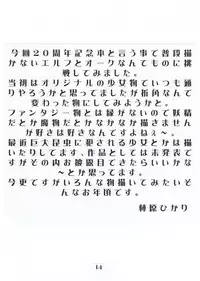 今回20周年記念本と言う事で普段描
かないエルフとオークなんてものに挑
戦してみました。
当初はオリジナルの少女物でいつも通
りやろうかと思ってましたが折角なんで
変わった物にしてみようかと。
ファンタジー物とは縁がないので妖精
だとか魔物だとかなかなか描きません
が好きは好きなんですよねぇ~。
最近巨大昆虫に犯される少女とかは描
いたりしてます、作品としては未発表で
すがその内お披露目できたらいいかな
~とか思ってます。
今更ですがいろんな物描いてみたいそ
んなお年頃です。
榊原ひかり
14